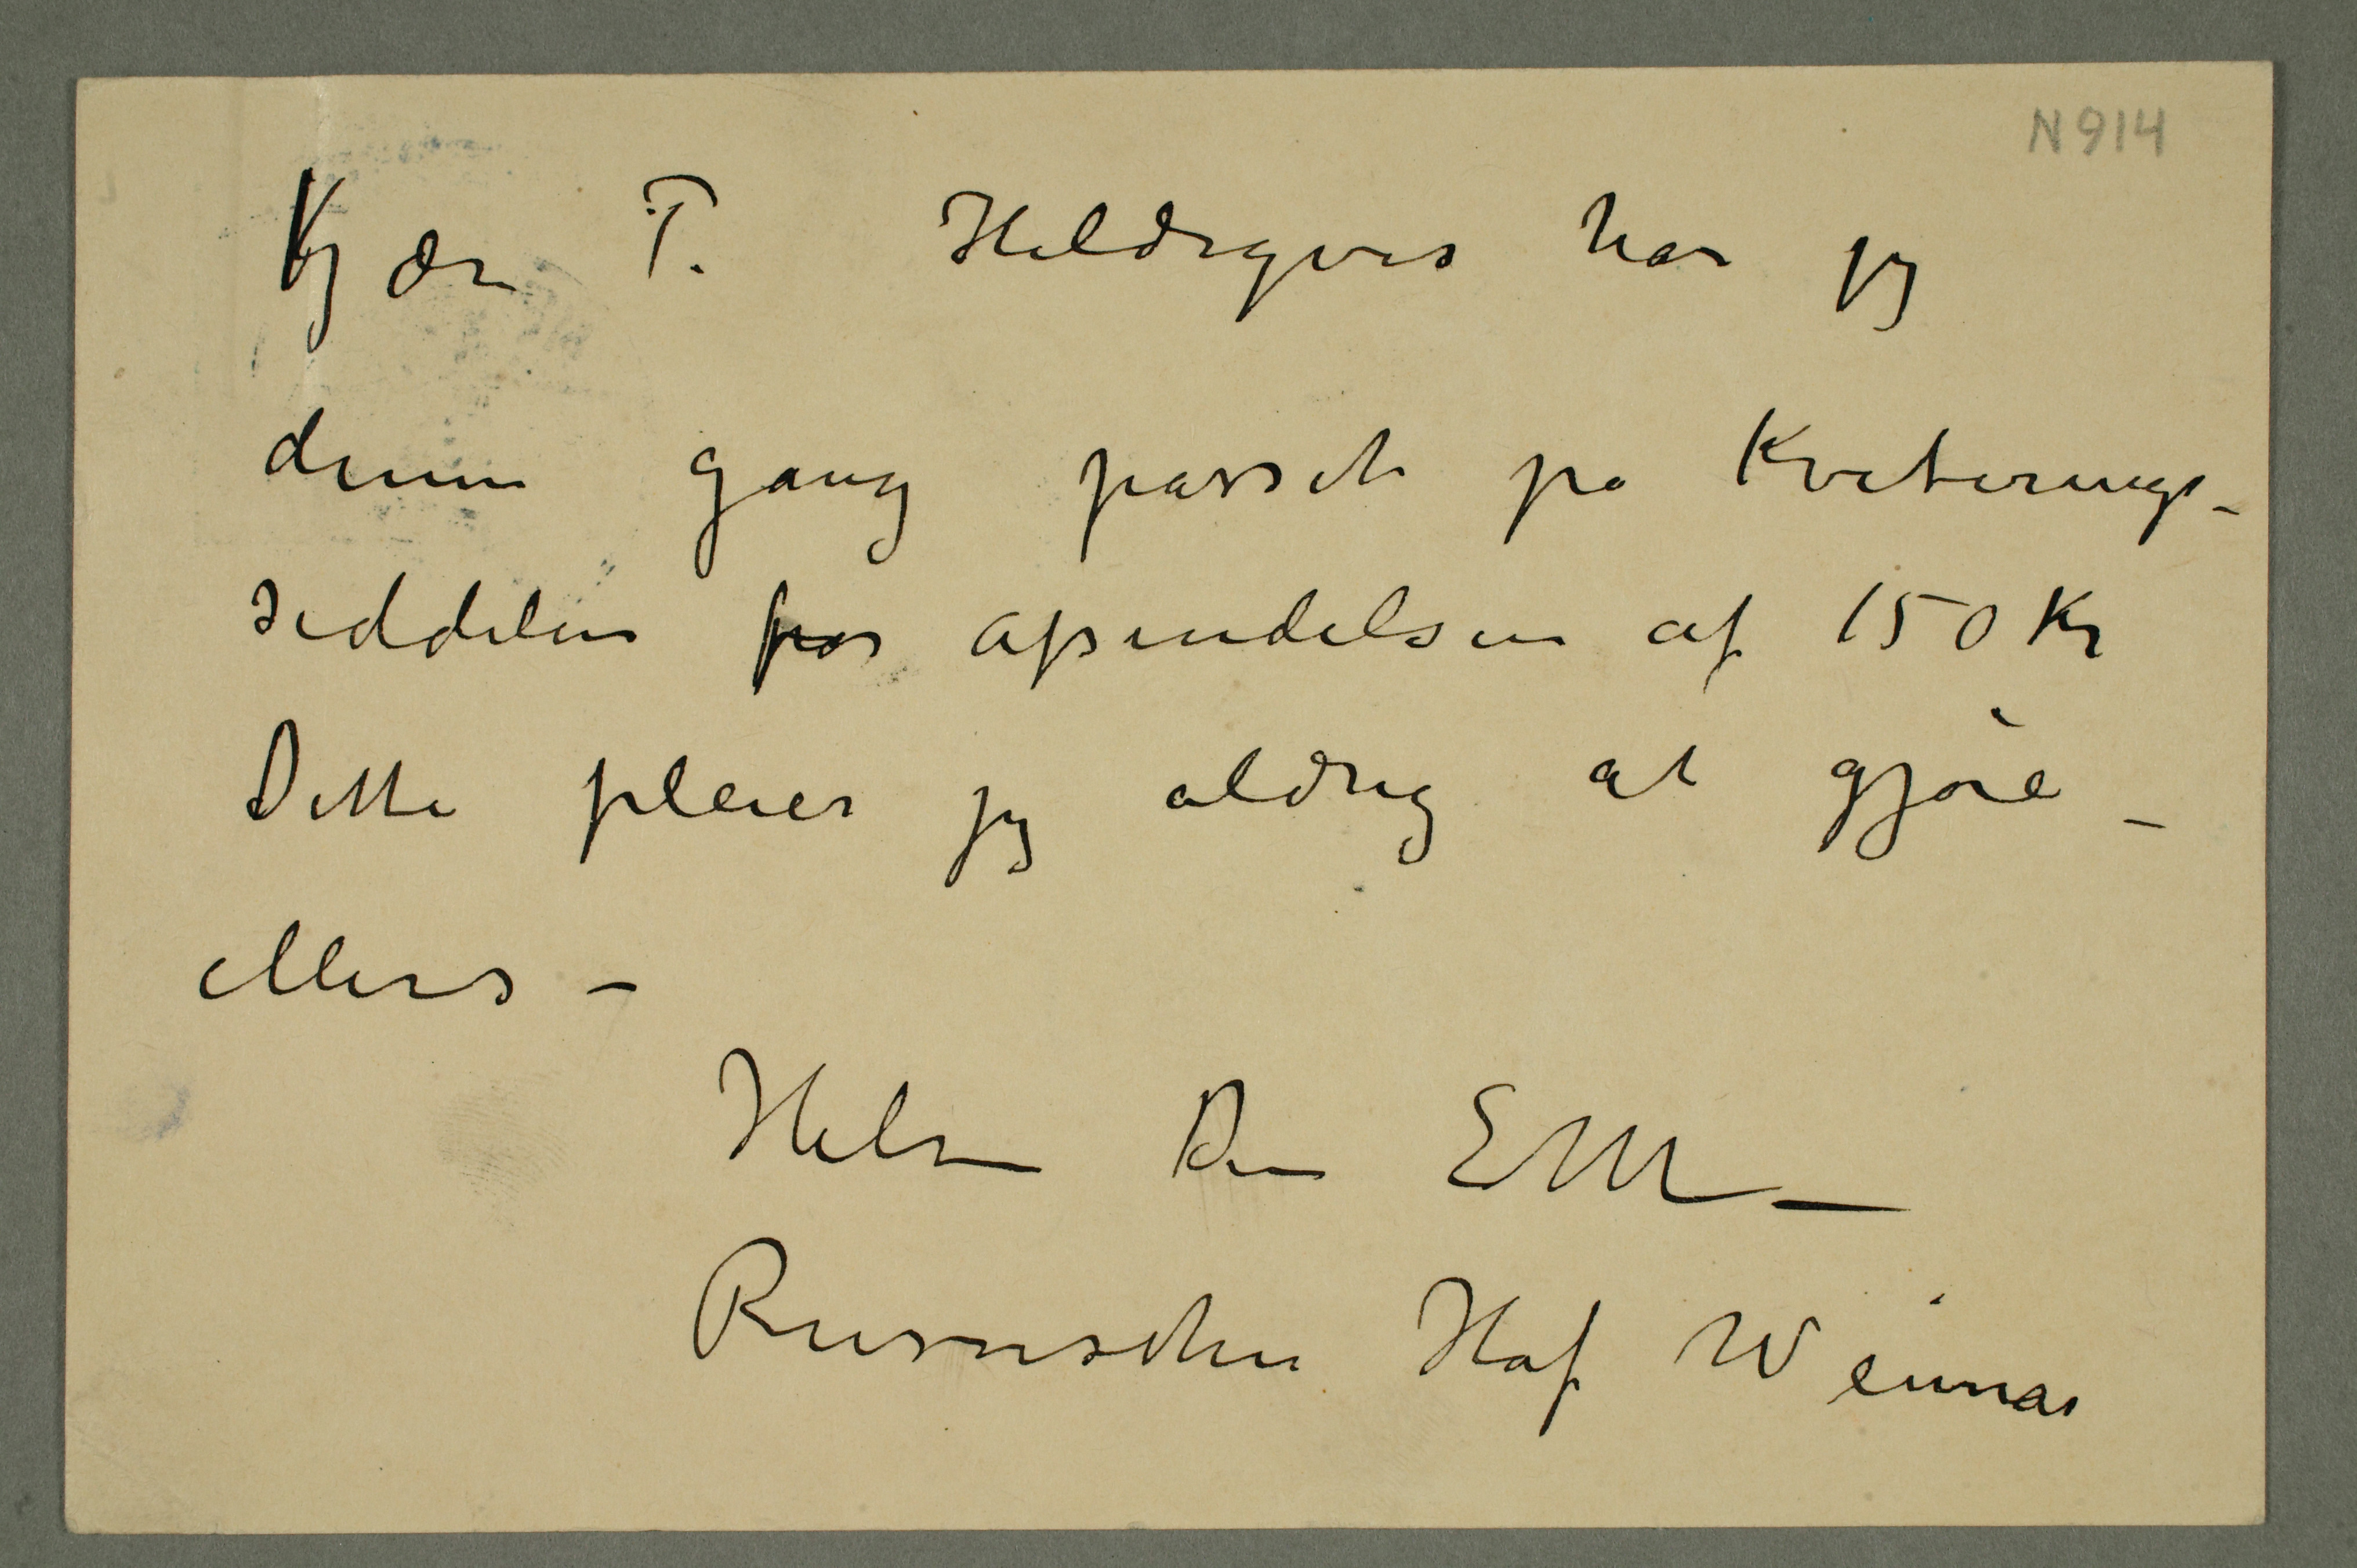 N 914
Kjære T. Heldigvis har jeg
denne gang passet på Kviterings-
seddelen for afsendelsen af 150 Kr
Dette pleier jeg aldrig at gjøre –
ellers –
Hilsen Din EM –
Russischer Hof Weimar